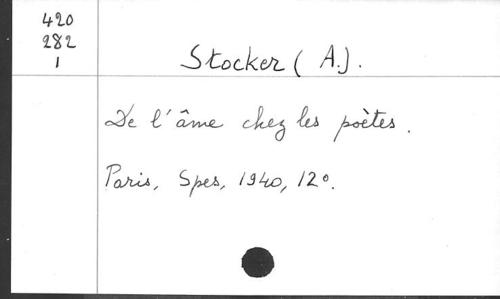 420
282
1
Stocker (A.).
De l'âme chez les poètes.
Paris, Spes, 1940, 12°.